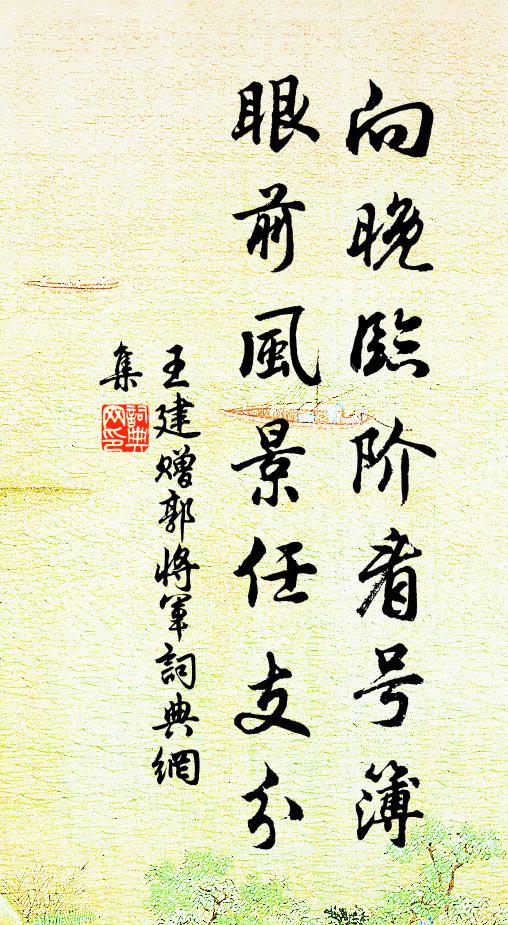 向晚臨阶看号簿
眼前風景任支分
王建赠郭将军詞典網
集
詞典
网印